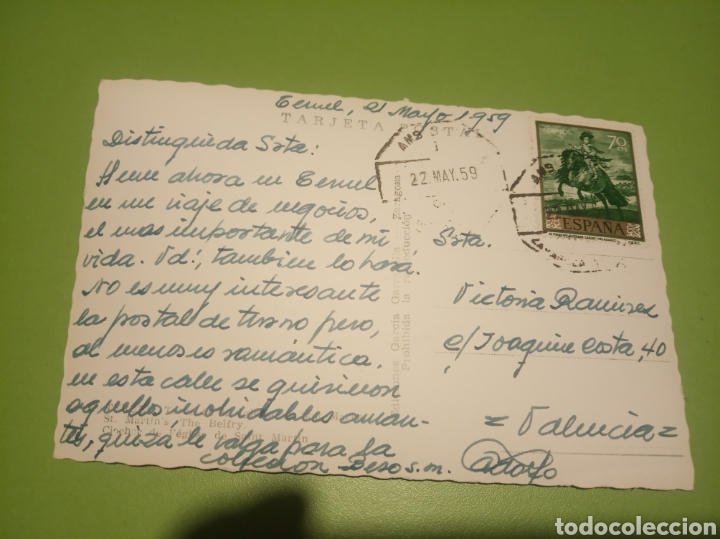 Teruel, 21 Mayo 1959
TARJETA POSTAL
Distinguida Srta:
Heme ahora en Teruel
en mi viaje de negocios,
el mas importante de mi
vida. Vd., tambien lo hará.
No es muy interesante
la postal de turno pero,
al menos es romántica.
en esta calle se quisieron
aquellos inolvidables aman-
tes, quizá le valga para la
colección. Beso s.m. Adolfo
St. Martin's The Belfry.
de Saint Martin
Ediciones García Garrabella Zaragoza
Prohibida la reproducción
AMB
22 MAY.59
CORREOS
70
CTS
ESPAÑA
AMB
Srta.
Victoria Ramirez
c/ Joaquin Costa, 40
= Valencia =
todocoleccion